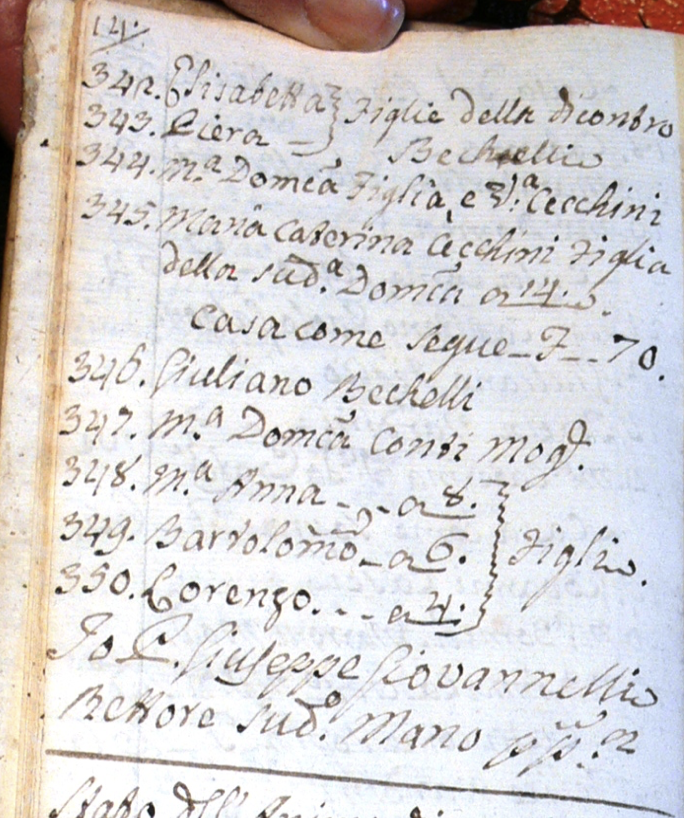 14.
342. Elisabetta } Figlie della dicontro
343. Piera } Bechelli
344. M.ª Domca Figlia, e V.ª Cecchini
345. Maria Caterina Cecchini Figlia
della sud.ª Domca a 14.
Casa come segue - F - 70.
346. Giuliano Bechelli
347. M.ª Domca Conti mog.
348. M.ª Anna - - a 8. }
349. Bartolomo - a 6. } Figli.
350. Lorenzo. - - a 4. }
Io P. Giuseppe Giovannelli
Rettore sud.º Mano pp.ª
Stato dell' Anime di